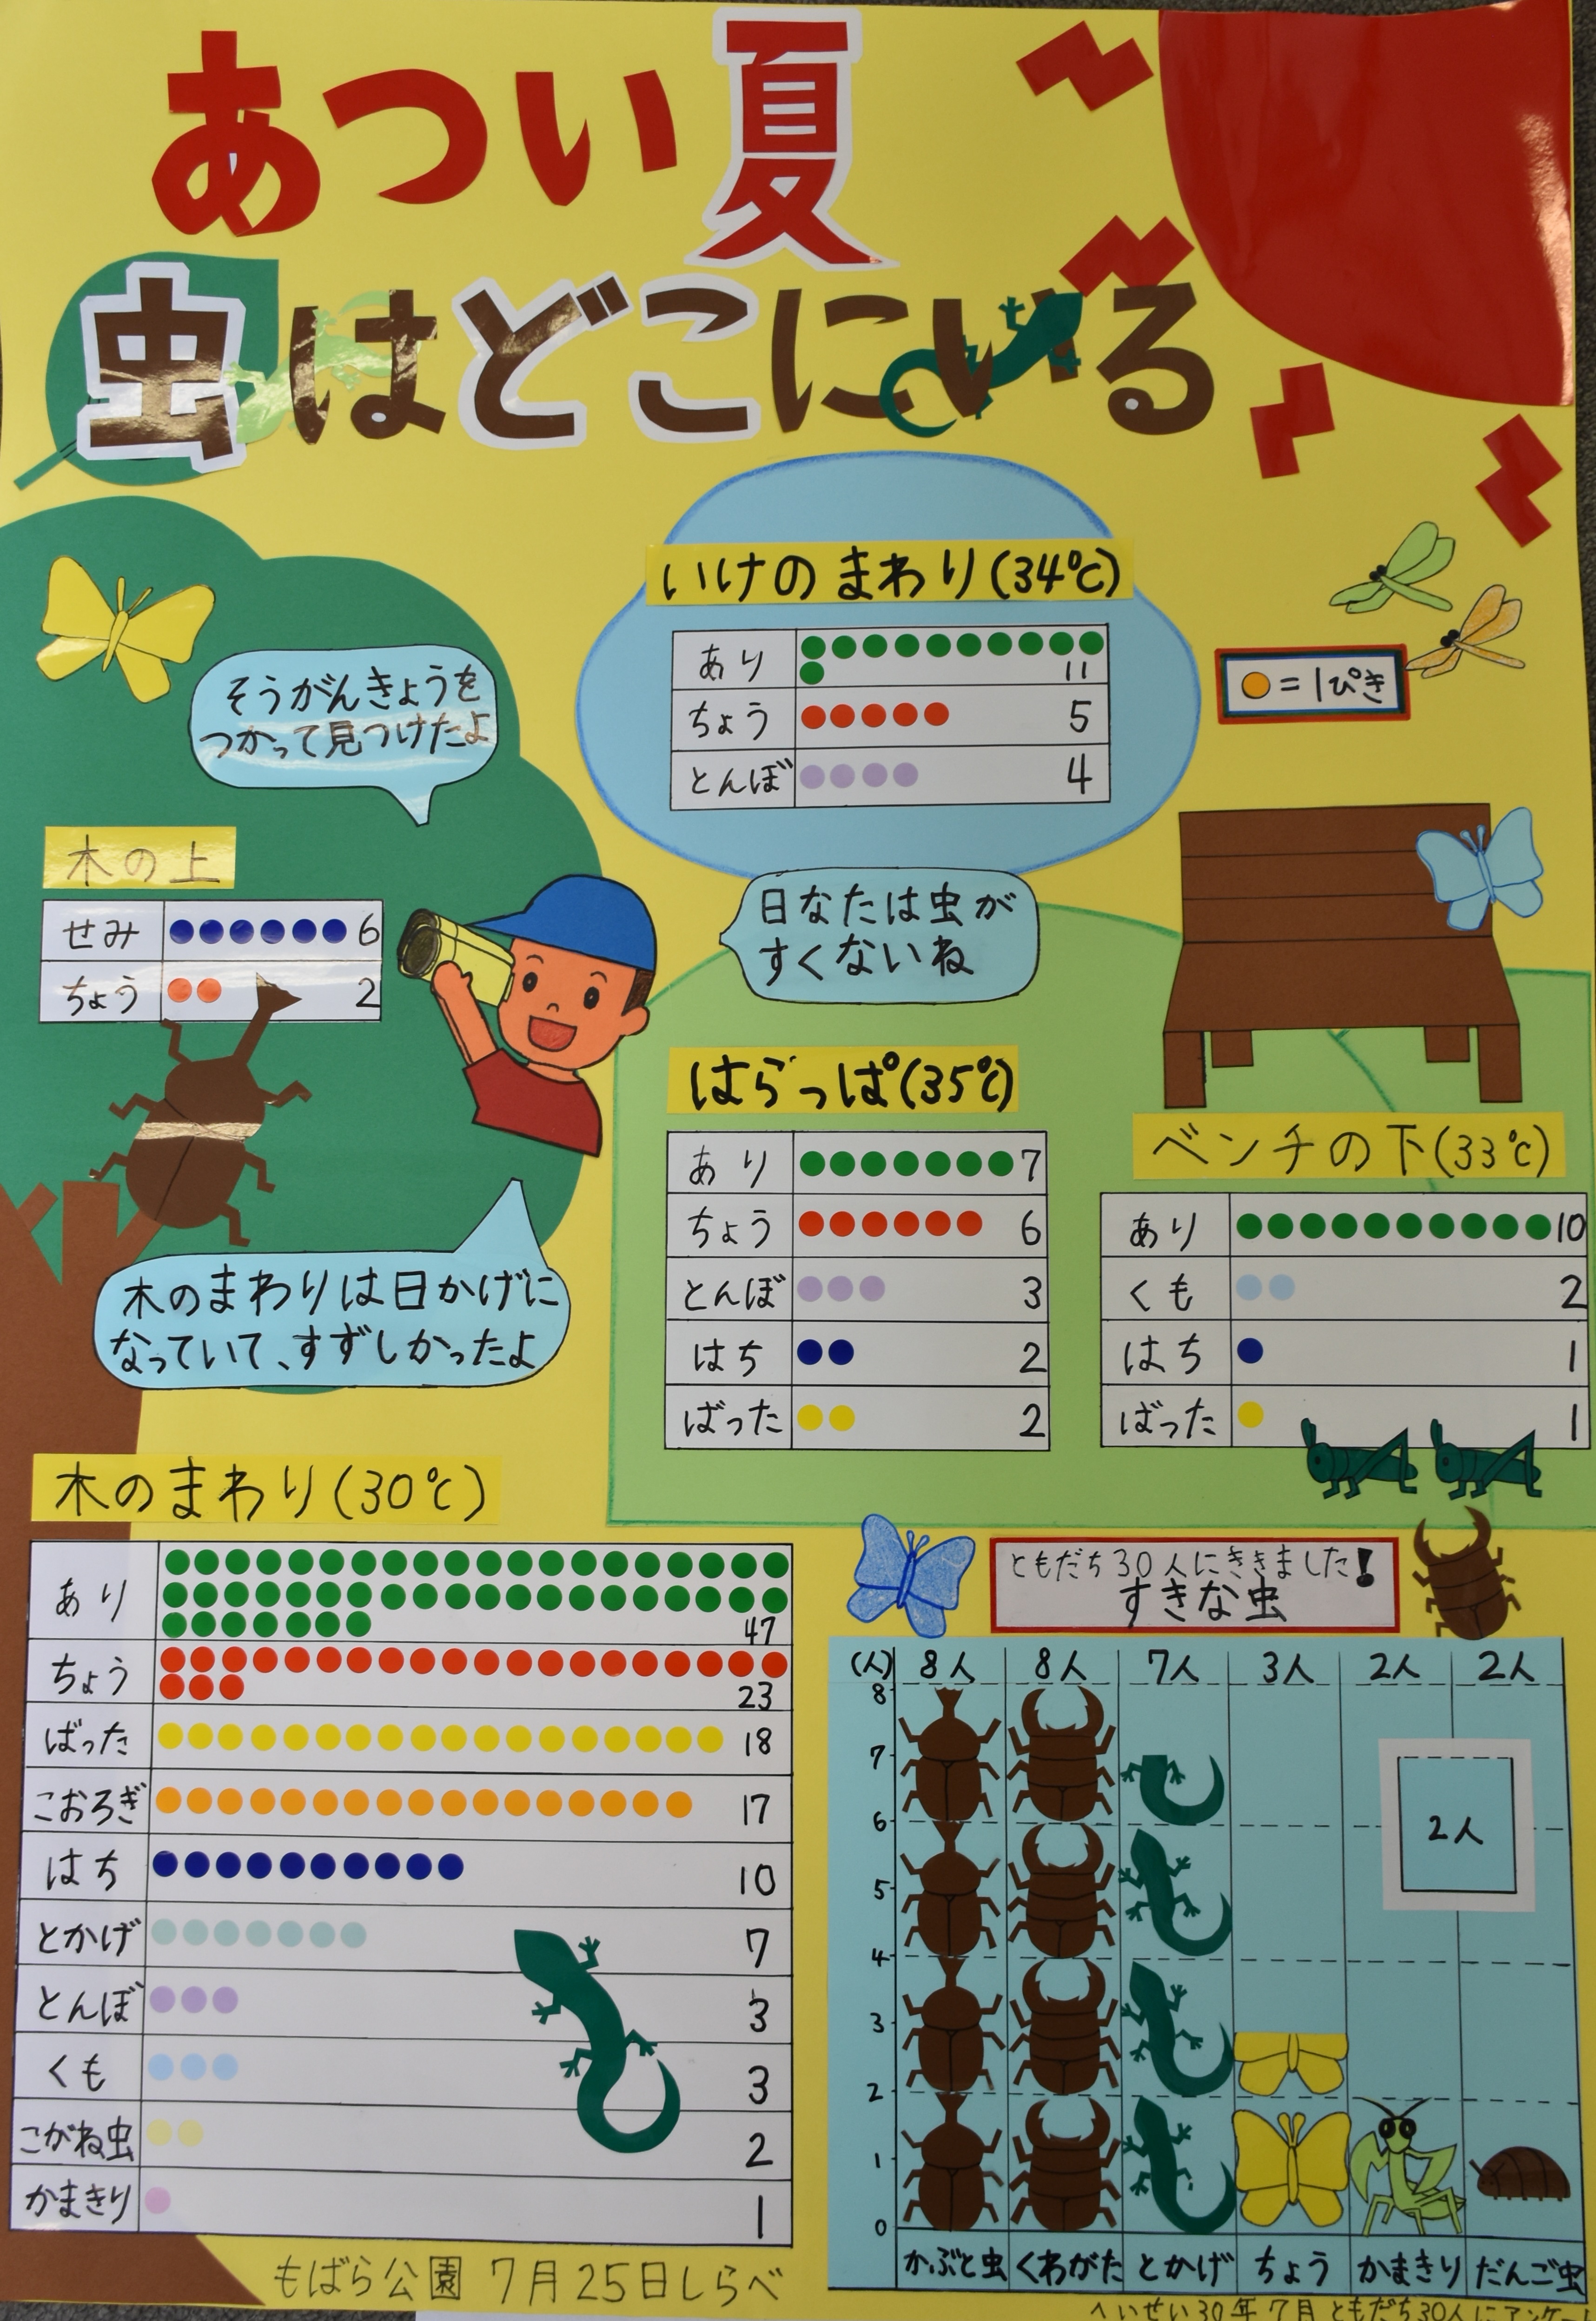 あつい夏
虫はどこにいる
いけのまわり(34℃)
あり 11
ちょう 5
とんぼ 4
=1ぴき
そうがんきょうを
つかって見つけたよ
木の上
せみ 6
ちょう 2
日なたは虫が
すくないね
はらっぱ(35℃)
あり 7
ちょう 6
とんぼ 3
はち 2
ばった 2
ベンチの下(33℃)
あり 10
くも 2
はち 1
ばった 1
木のまわりは日かげに
なっていて、すずしかったよ
木のまわり(30℃)
あり 47
ちょう 23
ばった 18
こおろぎ 17
はち 10
とかげ 7
とんぼ 3
くも 3
こがね虫 2
かまきり 1
もばら公園 7月25日しらべ
ともだち30人にききました!
すきな虫
(人) 8人 8人 7人 3人 2人 2人
8
7
6
5
4
3
2
1
0
2人
かぶと虫 くわがた とかげ ちょう かまきり だんご虫
へいせい30年7月 ともだち30人にアンケー